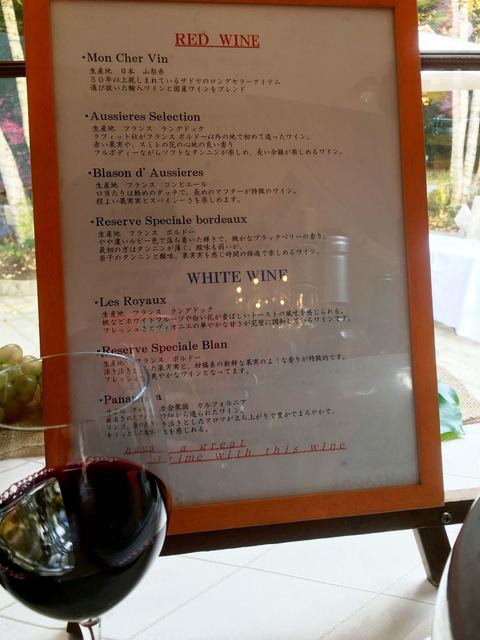 RED WINE
・Mon Cher Vin
生産地 日本 山梨県
50年以上親しまれているサドヤのロングセラーアイテム
選び抜いた輸入ワインと国産ワインをブレンド
・Aussieres Selection
生産地 フランス ラングドック
ラフィット社がフランスボルドー以外の地で初めて造ったワイン。
赤い果実や、スミレの花の心地の良い香り
フルボディーながらソフトなタンニンが楽しめ、長い余韻が楽しめるワイン。
・Blason d' Aussieres
生産地 フランス コンビエール
口当たりは軽めのタッチで、長めのアフターが特徴のワイン。
程よい果実実とスパイシーさを楽しめます。
・Reserve Speciale bordeaux
生産地 フランス ボルドー
やや濃いルビー色で落ち着いた輝きで、微かなブラックベリーの香り。
最初の方はタンニンが薄く、酸味も弱いが、
若干のタンニンと酸味、果実実を感じ時間の経過で楽しめるワイン。
WHITE WINE
・Les Royaux
生産地 フランス ラングドック
桃などホワイトフルーツや白い花が香ばしいトーストの風味を感じられる。
フレッシュさとヴィオニエの華やかな甘さが完璧に調和しているワインです。
・Reserve Speciale Blan
生産地 フランス ボルドー
活き活きした果実実と、柑橘系の新鮮な果実のような香りが特徴的です。
フレッシュ 爽やかなワインとなってます。
・Pana a
生産地 カ合衆国 カルフォルニア
厳選された から造られたワイン。
リンゴ、 活き活きとしたアロマが立ち上がりで豊かでまろやかで、
キリッとした 感じられる。
have a great
time with this wine